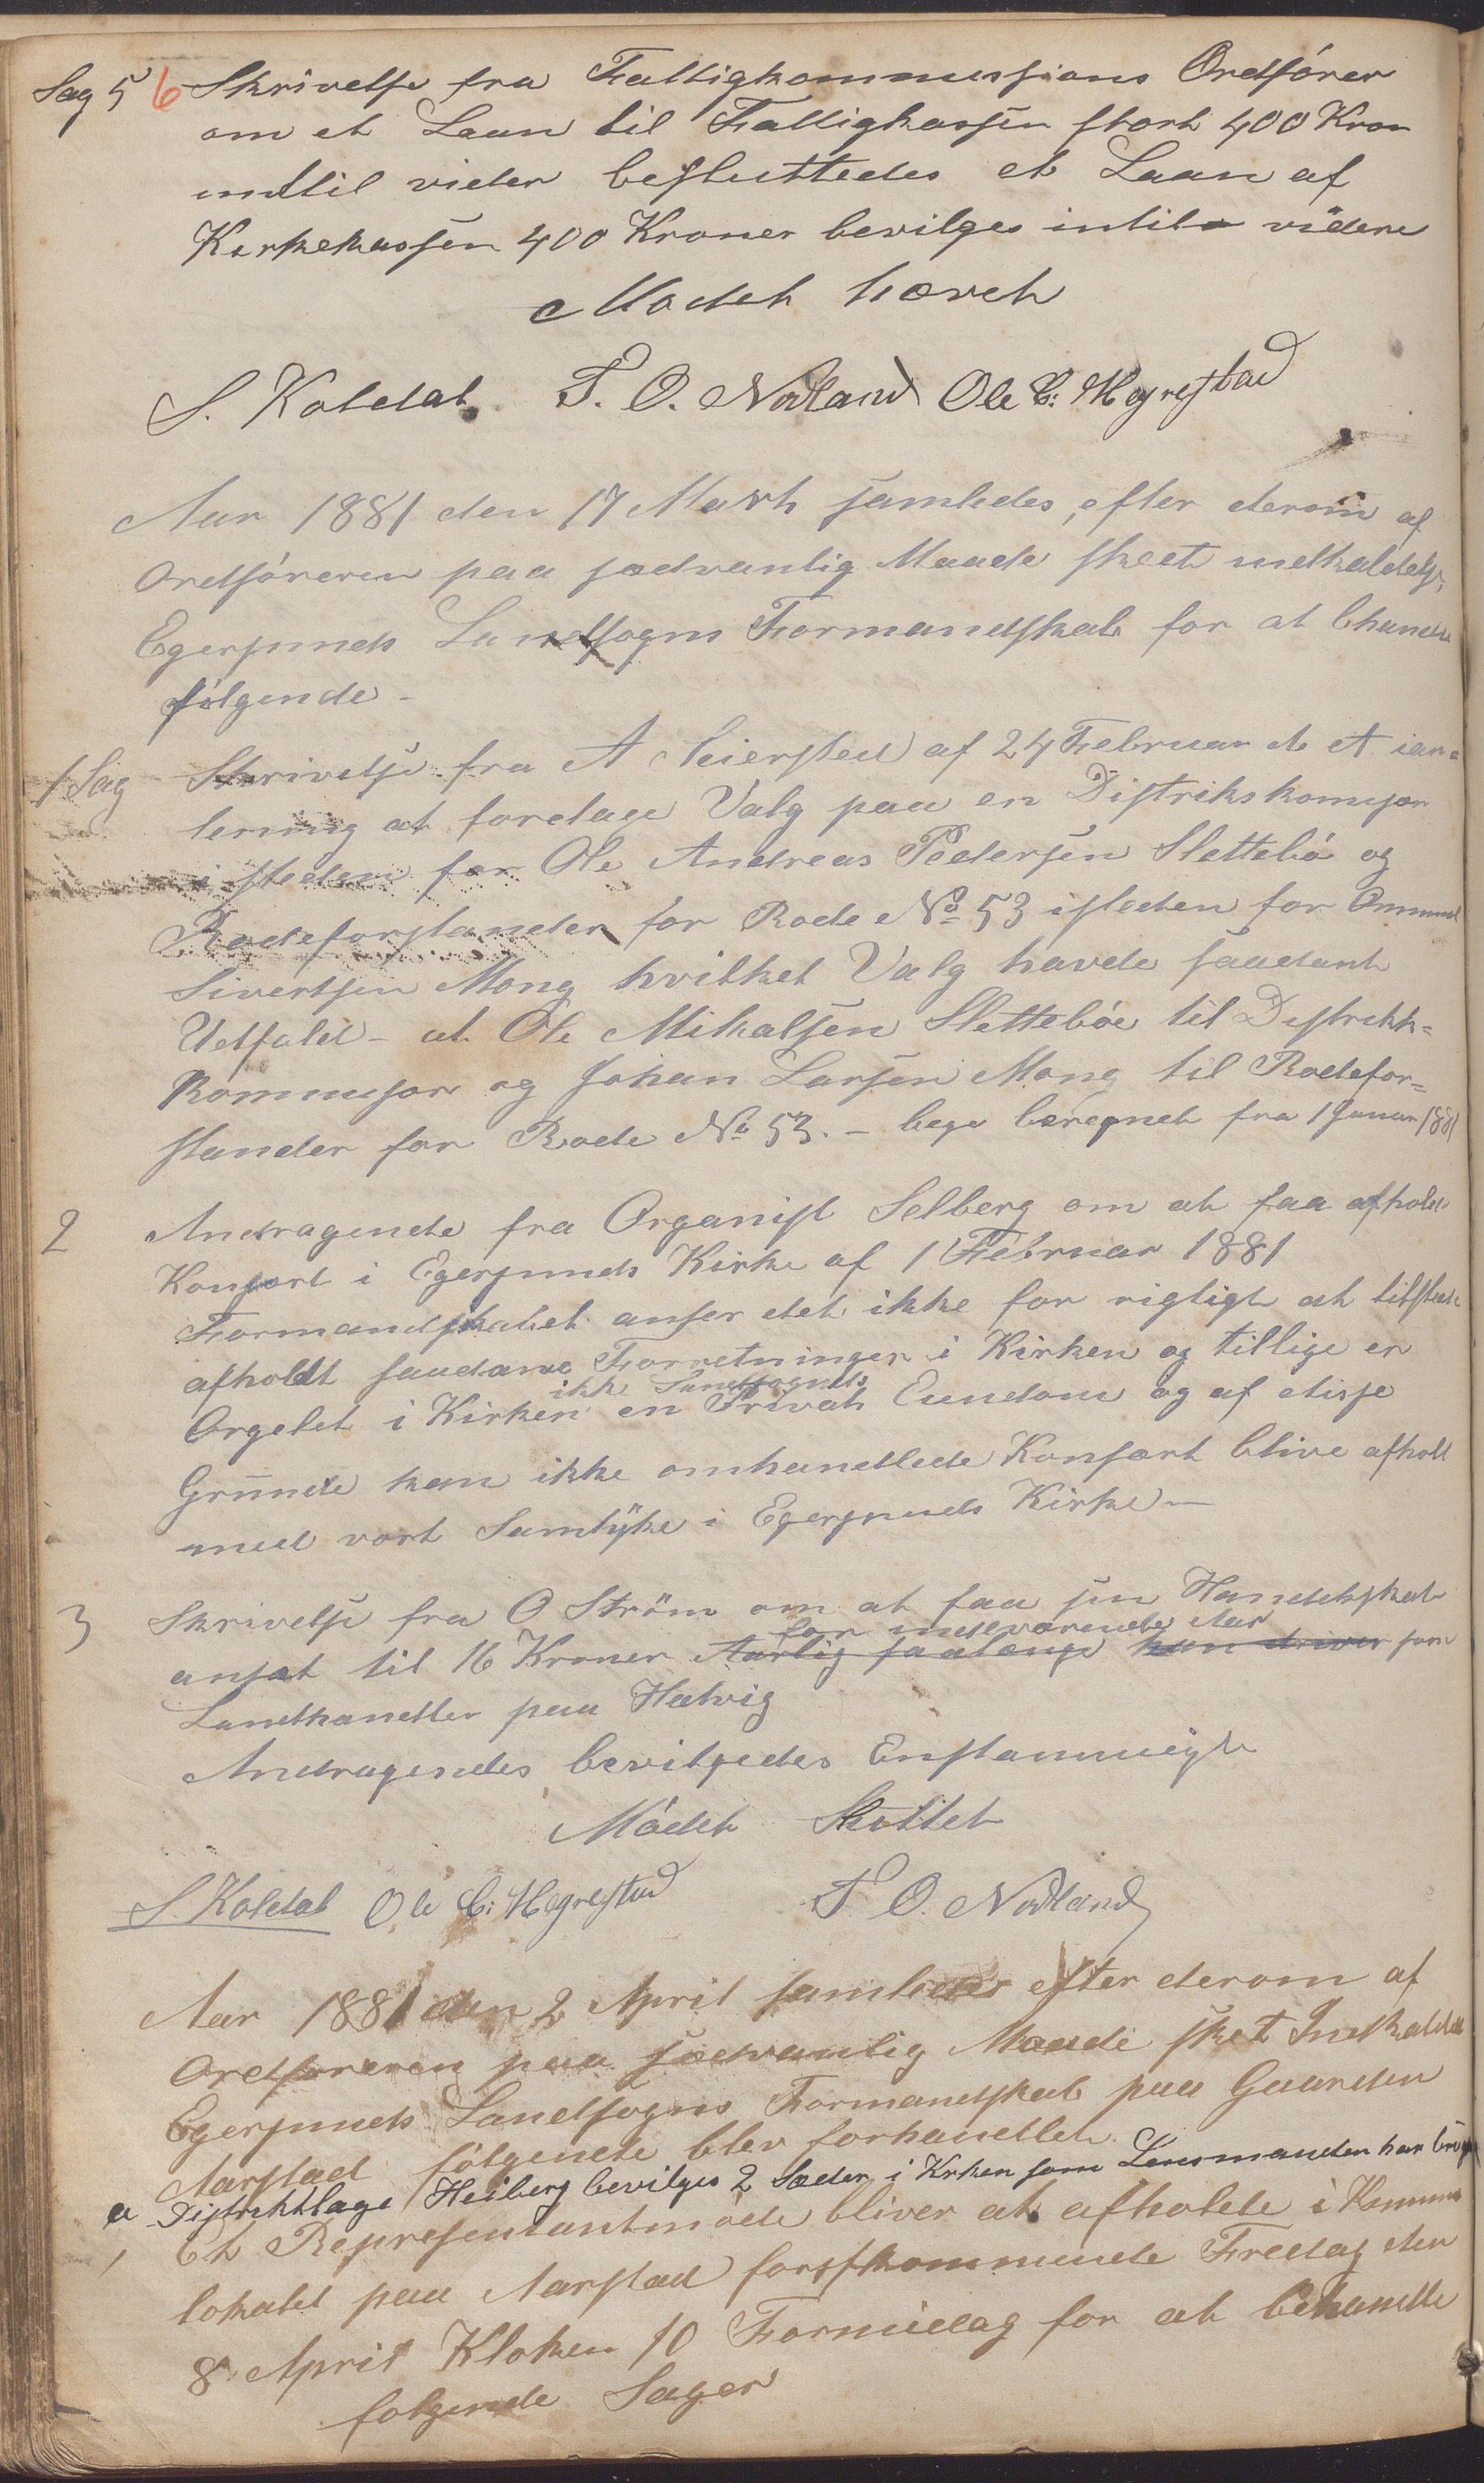 Sag 5 6 Skrivelse fra Fattigkommissions Ordfører
om et Laan til Fattigkassen stort 400 Kron
indtil vider besluttedes et Laan af
Kirkekassen 400 Kroner bevilges intil videre
Mødet hævet
S. Koldal. T. O. Nodland Ole C: Hegrestad
Aar 1881 den 17 Marth samledes, efter derom af
Ordføreren paa sædvanlig Maade skeet indkaldelse,
Egersunds Landsogns Formandskab for at behandle
følgende -
1 Sag Skrivelse fra A Feiersted af 24 Februar d. A.
lening at foretage Valg paa en Distrikskomisær
i steden for Ole Andreas Pedersen Slettebø og
Rodeforstander for Rode No 53 isteden for Ommund
Sivertsen Mong hvilket Valg havde saadant
Udfald - at Ole Mikalsen Slettebøe til Distrikk=
kommisær og Johan Larsen Mong til Rodefor=
stander for Rode No 53. - bege beregnet fra 1 Januar 1881
2 Andragende fra Organist Selberg om at faa afholde
Konsært i Egersunds Kirke af 1 Februar 1881
Formandskabet anser det ikke for rigtigt at tilstede
afholdt saadane Forretninger i Kirken og tillige er
ikke Landsognets
Orgelet i Kirken en Privat Eiendom og af disse
Grunde kan ikke omhandlede Konsært blive afholt
med vort Samtyke i Egersunds Kirke -
3 Skrivelse fra O Strøm om at faa sin Handelsskat
for indeværende Aar
ansat til 16 Kroner Aarlig saalænge han driver som
Landhandler paa Helvig
Andragendes bevilgedes Enstammigt
Mødet Sluttet
S. Koldal Ole C: Hegrestad T. O. Nodland
Aar 1881 den 2 April samledes efter derom af
Ordføreren paa sædvanlig Maade sket Indkaldel
Egersunds Landsogns Formandskab paa Gaarden
Aarstad følgende blev forhandlet.
a Distriktlæge Heiberg bevilges 2 Sæder i Kirken som Lensmanden har brugt
1 Et Representantmøde bliver at afholde i Kommune
lokalet paa Aarstad førstkommende Fredag den
8 April Kloken 10 Formidag for at behandle
følgende Sager